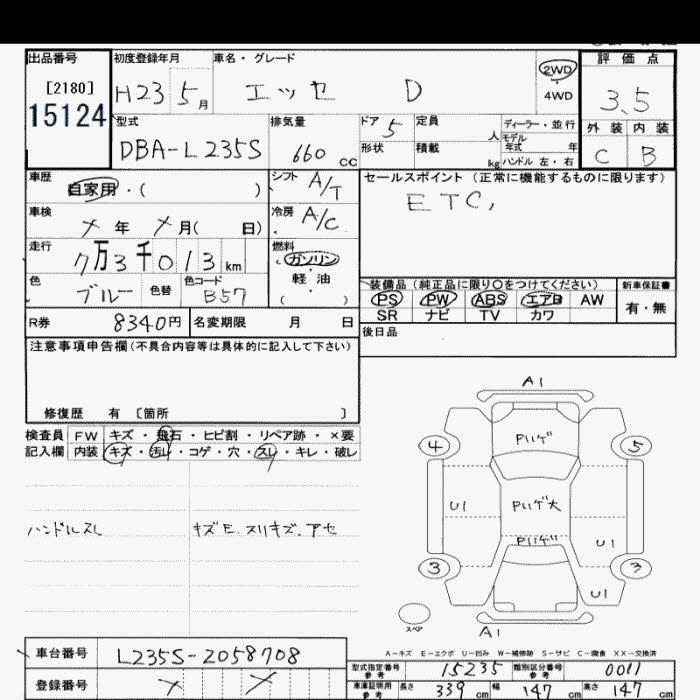 出品番号 初度登録年月 車名・グレード 評価点
[2180] H23 5月 エッセ D 2WD 3.5
15124 4WD
型式 排気量 ドア 5 定員 人 ディーラー・並行 外装 内装
DBA-L235S 660 cc 形状 積載 kg モデル年式 年 C B
ハンドル 左・右
車歴 自家用・( ) シフト A/T セールスポイント (正常に機能するものに限ります)
車検 メ年 メ月( 日) 冷房 A/C ETC,
走行 7万3千013km 燃料 ガソリン
色 ブルー 色替 色コード B57 軽油 ( )
装備品(純正品に限り○をつけてください) 新車保証書
PS PW ABS エアB AW 有・無
SR ナビ TV カワ
R券 8340円 名変期限 月 日
後日品
注意事項申告欄(不具合内容等は具体的に記入して下さい)
修復歴 有 〔箇所 〕
検査員 FW キズ・飛石・ヒビ割・リペア跡・×要
記入欄 内装 キズ・汚レ・コゲ・穴・スレ・キレ・破レ
ハンドルスレ キズE.スリキズ.アセ
A1
Pハゲ
4 5
U1 Pハゲ大
Pハゲ U1
3 3
U1
スペア
A1
A-キズ E-エクボ U-凹み W-補修跡 S-サビ C-腐食 XX-交換済
車台番号 L235S-2058708
登録番号 メ メ
型式指定番号 参考 15235 類別区分番号 参考 0011
車庫証明用 参考 長さ 339cm 幅 147cm 高さ 147cm